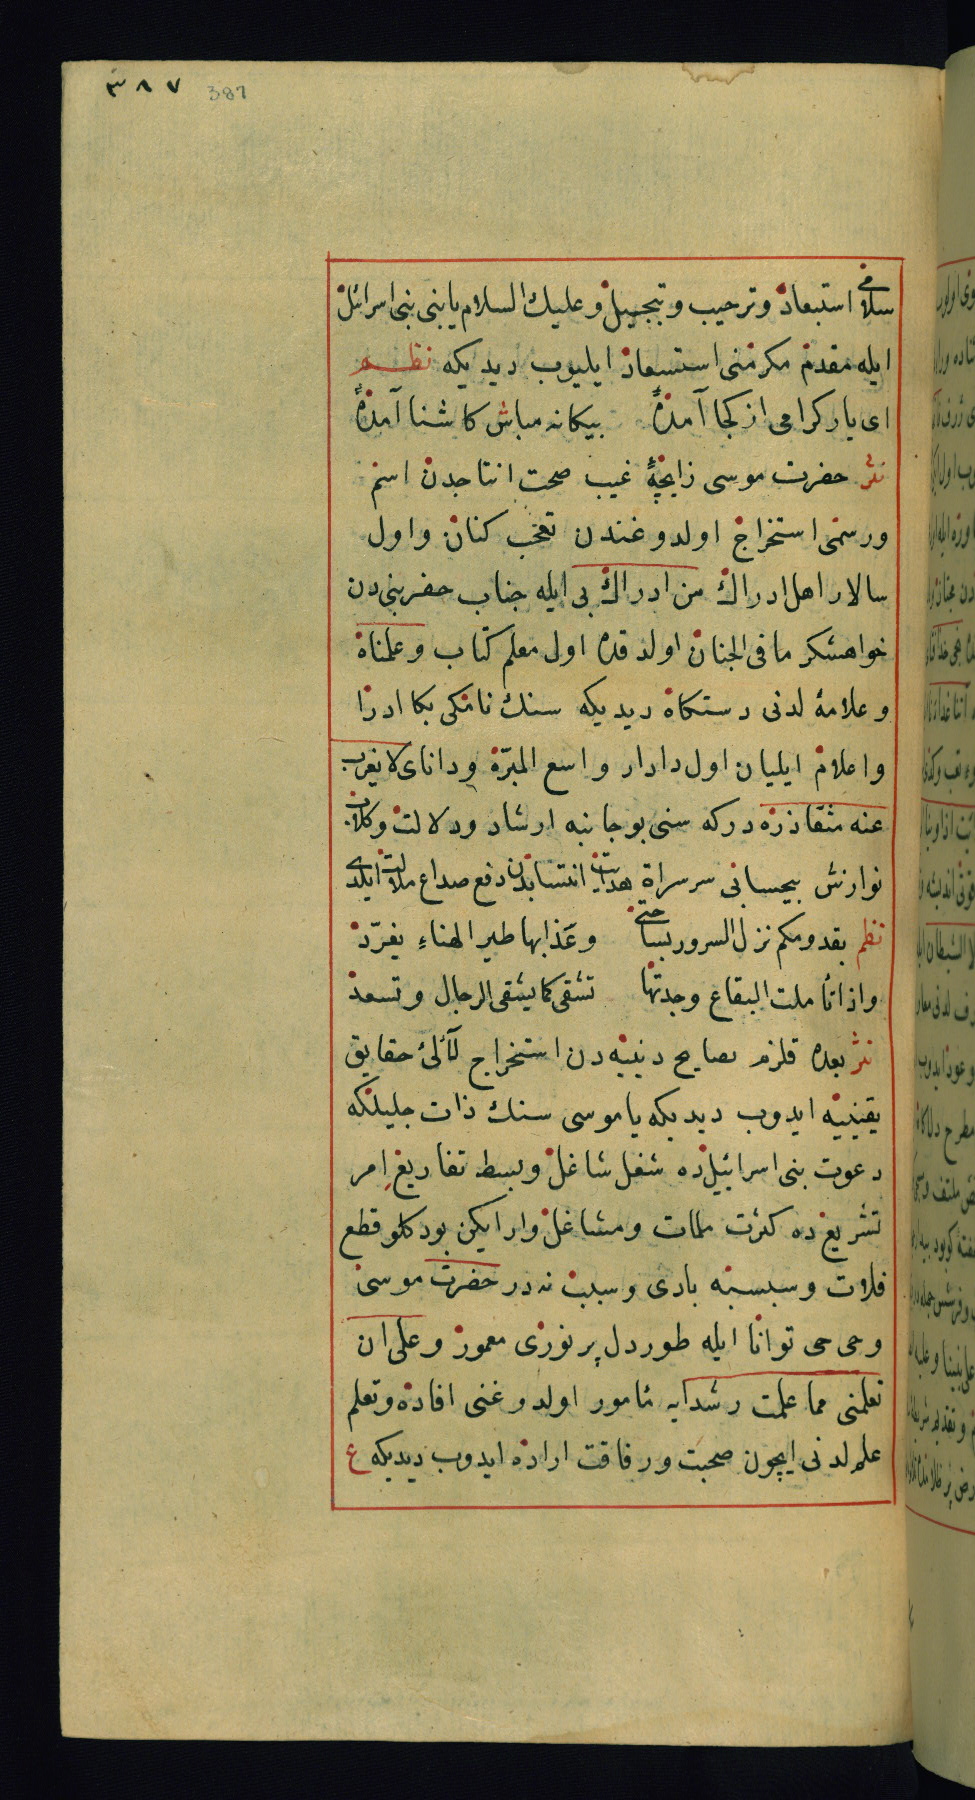 ٣٨٧ 387
سلامی استبعاد و ترحیب و تبجیل و علیك السلام یا بنی بنی اسرائل
ایله مقدم مکرمنی استسعاد ایلیوب دیدیکه نظم
ای یار کرامی از کجا آمدهٔ بیکانه مباش کاشنا آمدهٔ
نثر حضرت موسی زایجهٔ غیب صحت انتاجدن اسم
و رسمنی استخراج اولدوغندن تعجب کنان و اول
سالار اهل ادراك من ادراك بی ایله جناب حضر بنی دن
خواهشکر مافی الجنان اولدقده اول معلم کتاب و علمناه
و علامهٔ لدنی دستکاه دیدیکه سنك نامکی بکا ادرا
و اعلام ایلیان اول دادار واسع المبرّة و دانای لا یعزب
عنه مثقال ذره درکه سنی بو جانبه ارشاد و دلالت و کلامی
نوازش بیحسابی سرسراة هدایت انتسابدن دفع صداع ملالت ایلدی
نظم بقدومکم نزل السرور بساحتی و غذابها طیر الهناءِ یغرّد
و اذا تأملت البقاع وجدتها تشقی کما یشقی الرجال و تسعد
نثر بعده قلزم نصایح دینیه دن استخراج لآلیٔ حقایق
یقینیه ایدوب دیدیکه یا موسی سنك ذات جلیلنکه
دعوت بنی اسرائیلده شغل شاغل و بسط تفاریغ امر
تشریعده کثرت ملمات و مشاغل وار ایکن بودکلو قطع
فلات و سبسبه بادی و سبب نه در حضرت موسی
وحی حی توانا ایله طور دل پر نوری معمور و علی ان
تعلمنی مما علمت رشدا یه مأمور اولدوغنی افاده و تعلم
علم لدنی ایچون صحبت و رفاقت اراده ایدوب دیدیکه ع